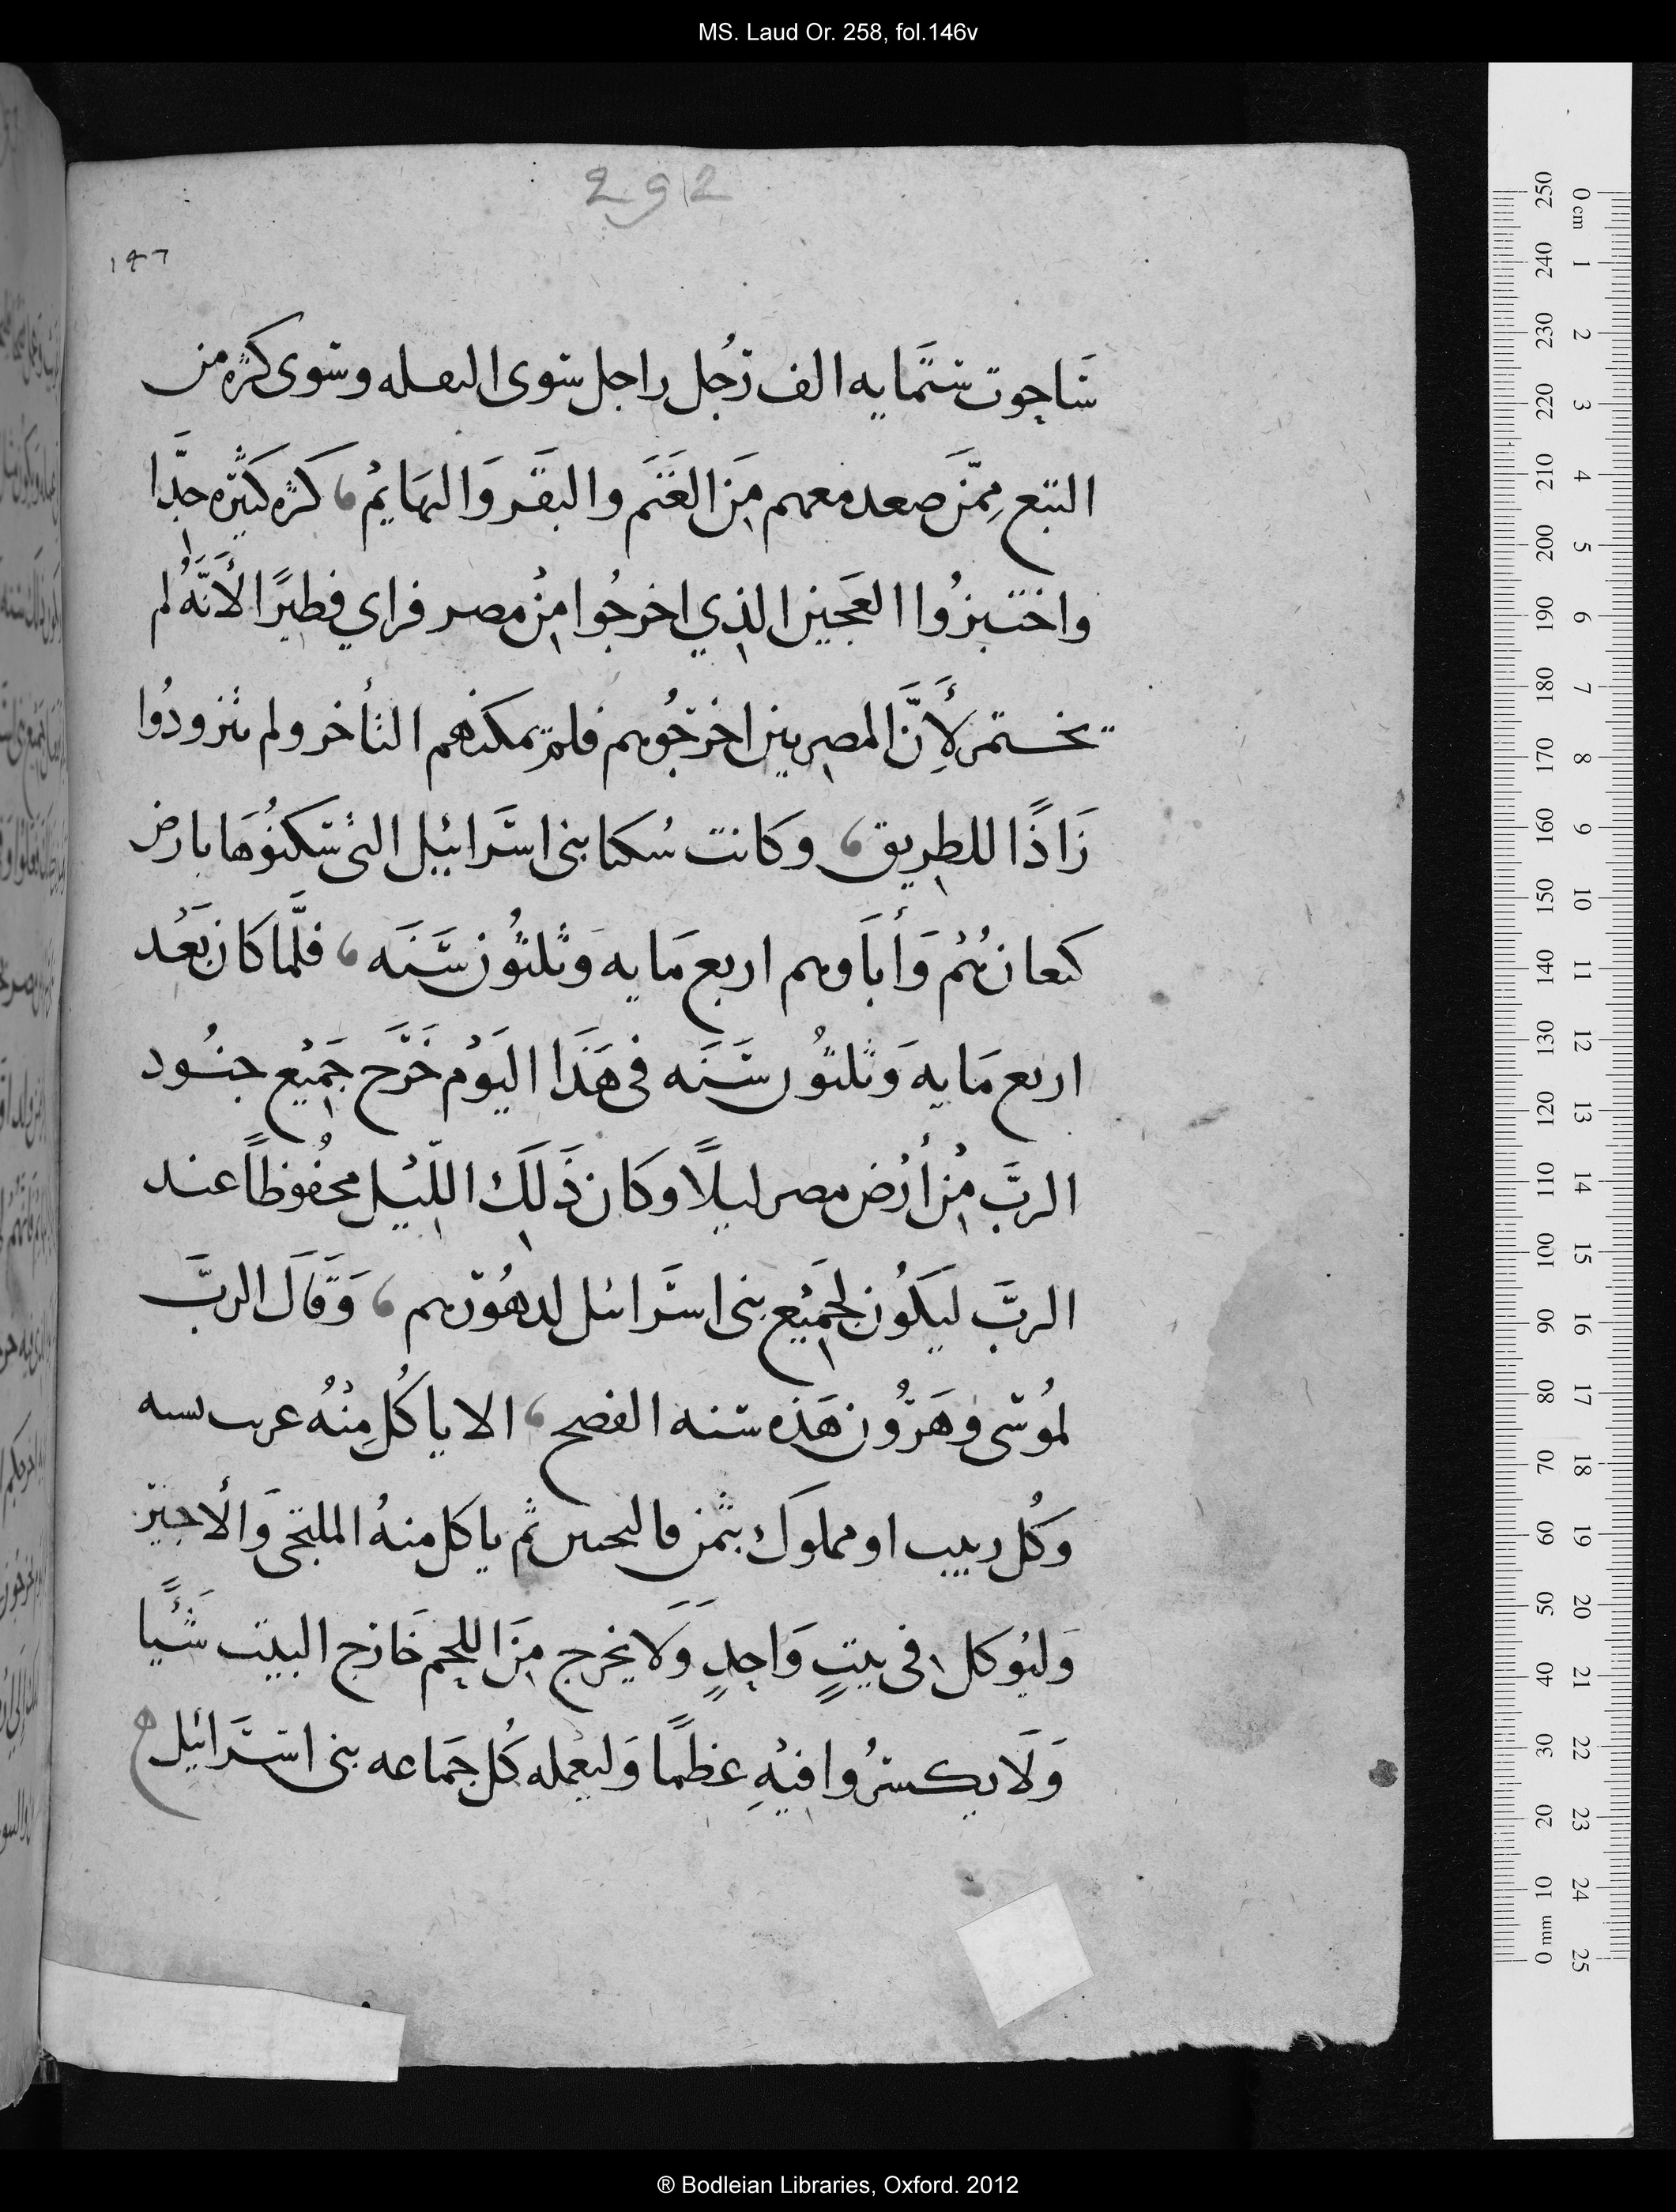 MS. Laud Or. 258, fol.146v
292
١٤٦
ساحوت ستمايه الف رجل راجل سوى الثقله وسوى كثره من
التبع ممن صعد معهم من الغنم والبقر والبهايم، كثره كثيره جدا
واختبزوا العجين الذي اخرجوا من مصر فراي فطيرًا لأنه لم
يختمر لأنَّ المصريين اخرجوهم فلم يمكنهم التأخر ولم يتزودُوا
زادًا للطريق، وكانت سُكنا بني اسرائيل التي سكنوُها بارض
كنعان هُم وَأباوهم اربع مَايه وثلثون سَنَه، فلَّما كان بَعْد
اربع مَايه وَثلثوُن سَنَه في هَذَا اليَوْم خَرَج جَميْع جنُود
الربَّ منْ أرض مصر ليلًا وكان ذَلِكَ اللّيْل محفُوظاً عند
الربَّ ليَكُون لجَميْع بني اسَرائيل لدهُورهم، وَقَالَ الربَّ
لمُوسى وهَرُون هَذه سنه الفصح، الا ياكُل مِنْهُ
وَكُل ربيب او مملوك بثمن ثم ياكل منهُ الملتجى وَالأجير
وَليُوكل في بيتٍ وَاحِدٍ وَلَا يخرج مِنَ اللحم خَارج البيت شَيْئًا
وَلَا يكسرُوا فيْهِ عظمًا وَليعْمله كُل جَماعه بني اسَرائيل
® Bodleian Libraries, Oxford. 2012